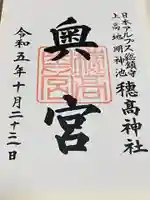 日本アルプス総鎮守
上高地明神池
穂高神社
奥宮
令和五年十月二十二日